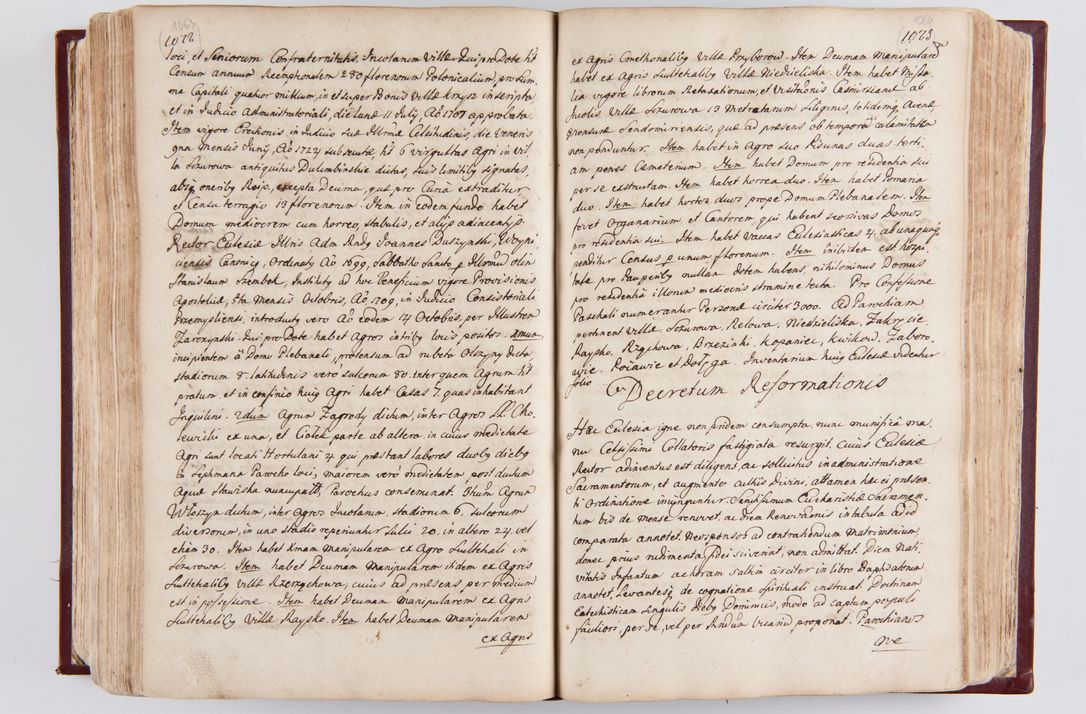 1072
loci, et Seniorum Confraternitatis, Incolarum Villæ. Qui pro Dote ht
Censum annuum Reemptionalem 280 florenorum Polonicalium, pro sum,
ma Capitali quatuor millium, in et super Bonis Villæ Krzysz inscripta
et in Judicio Administratoriali, die Lunæ 11 July, Ao 1707 approbata.
Item vigore Erectionis, in Judicio suæ Illmæ Celsitudinis, die Veneris
gna mensis Junij, Ao 1724 subsecutæ, ht 6 virgultas Agri in Vil,
la Szurowa antiquitus Dulembinskie dictas, suis limitibg signatas,
abiq oneribg Reip. excepta Decima, quæ pro Cura extraditur
et Censu terragio 13 florenorum. Item in eodem fundo habet
Domum mediocrem cum horreo, stabulis, et alijs adjacentijs.
Rector Ecclesiæ Illris Adm Rndg Joannes Duszynski, Woyni,
ciensis Canonicg, Ordinatg Ao 1699, Sabbatho Sancto p Illmum olim
Stanislaum Szembek, Institutg ad hoc Beneficium vigore Provisionis
Apostolicæ, 5ta mensis Octobris, Ao 1709, in Judicio Consistoriali
Przemysliensi, introductg vero Ao eodem 17 Octobris, per Illustrem
Zarczynski. Qui pro Dote habet Agros in tribg locis positos. Unum
incipientem a Domo Plebanali, protensum ad rubeta Olszyny dicta,
stadiorum 8. latitudinis vero sulcorum 80. inter quem Agrum ht
pratum, et in confinio huig Agri habet Casas 7. quas inhabitant
Inquilini. 2dum Agrum Zagrody dictum, inter Agros
ex una, et Ciołek parte ab altera, in cuius medietate
Agri sunt locati Hortulani 4 qui præstant labores duobg diebg
in Septimana Parocho loci, maiorem vero medietatem, post ductum
Aquæ Stawiska nuncupatt, Parochus conseminat. 3tium Agrum
Włoszyn dictum, inter Agros Incolarum, stadiorum 6, sulcorum
diversorum, in uno stadio reperiuntur Sulci 20, in altero 24, vel
etiam 30. Item habet Xmam manipularem ex Agro Scultetiali in
Szurowa. Item habet Decimam Manipularem itidem ex Agris
Scultetialibg Villæ Rzerzychowa, cuius ad præsens, per medium
est in possessione. Item habet Decimam Manipularem ex Agris
Scultetialibg Villæ Raysko. Item habet Decimam manipularem
ex Agris
1064
1073
ex Agris Cmethonalibg Villæ Przyborow. Item Decimam Manipularem
habet ex Agris Scultetialibg Villæ Niedzieliska. Item habet Missa,
lia vigore librorum Retaxationum, et Visitaõnis Cazimirsianæ ab
Incolis Villæ Szurowa 13 Metretarum Siliginis, totidemq Avenæ
mensuræ Sendomiriensis, quæ ad præsens ob temporũ calamitatem
non penduntur. Item habet in Agro suo Piscinas duas, terti,
am penes Cæmeterium. Item habet Domum pro residentia sui
per se exstructam. Item habet horrea duo. Item habet Pomaria
duo. Item habet hortos duos prope Domum Plebanalem. Item
fovet Organarium et Cantorem qui habent seorsivas Domos
pro residentia sui. Item habet Vaccas Ecclesiasticas 4. ab unaquaq
penditur Census p unum florenum. Item inibidem est hospi,
tale pro Pauperibg nullam dotem habens, nihilominus Domus
pro residentia illorum mediocris stramine tecta. Pro Confessione
Paschali numerantur Personæ circiter 3000. Ad Parochiam
pertinent Villæ, Szurowa, Relowa, Niedzieliska, Zakrzyie,
Raysko, Rzychowa, Brzezinki, Kopaniec, Kwikow, Zaboro,
wie, Pożawie et Dołęga. Inventarium huig Ecclesiæ videntur
folio
Decretum Reformationis
Hæc Ecclesia igne non pridem consumpta, nunc munificâ ma,
nu Celsissimi Collatoris fastigiata resurgit, cuius Ecclesiæ
Rector adinventus est diligens, ac sollicitus in administratione
Sacramentorum, et augmento cultus Divini, attamen hac ei præsen,
ti Ordinatione iniunguntur. Sanctissimum Eucharistiæ Sacramen,
tum bis de Mense renovet, ac diem Renovaõnis in tabula ad id
comparata annotet. Neosponsos ad contrahendum Matrimonium,
donec prius rudimenta fidei sciverint, non admittat. Diem Nati,
vitatis Infantum ac horam saltim circiter in libro Baptisatorum
annotet, Levantesq de cognatione Spirituali instruat. Doctrinam
Catechisticam singulis diebg Dominicis, modo ad captum populi
faciliori, per se, vel per Rndum Vicariũ proponat. Parochianos
ne